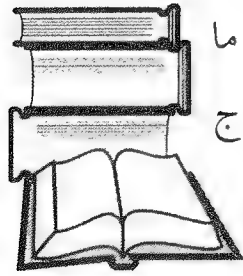 ما
ج